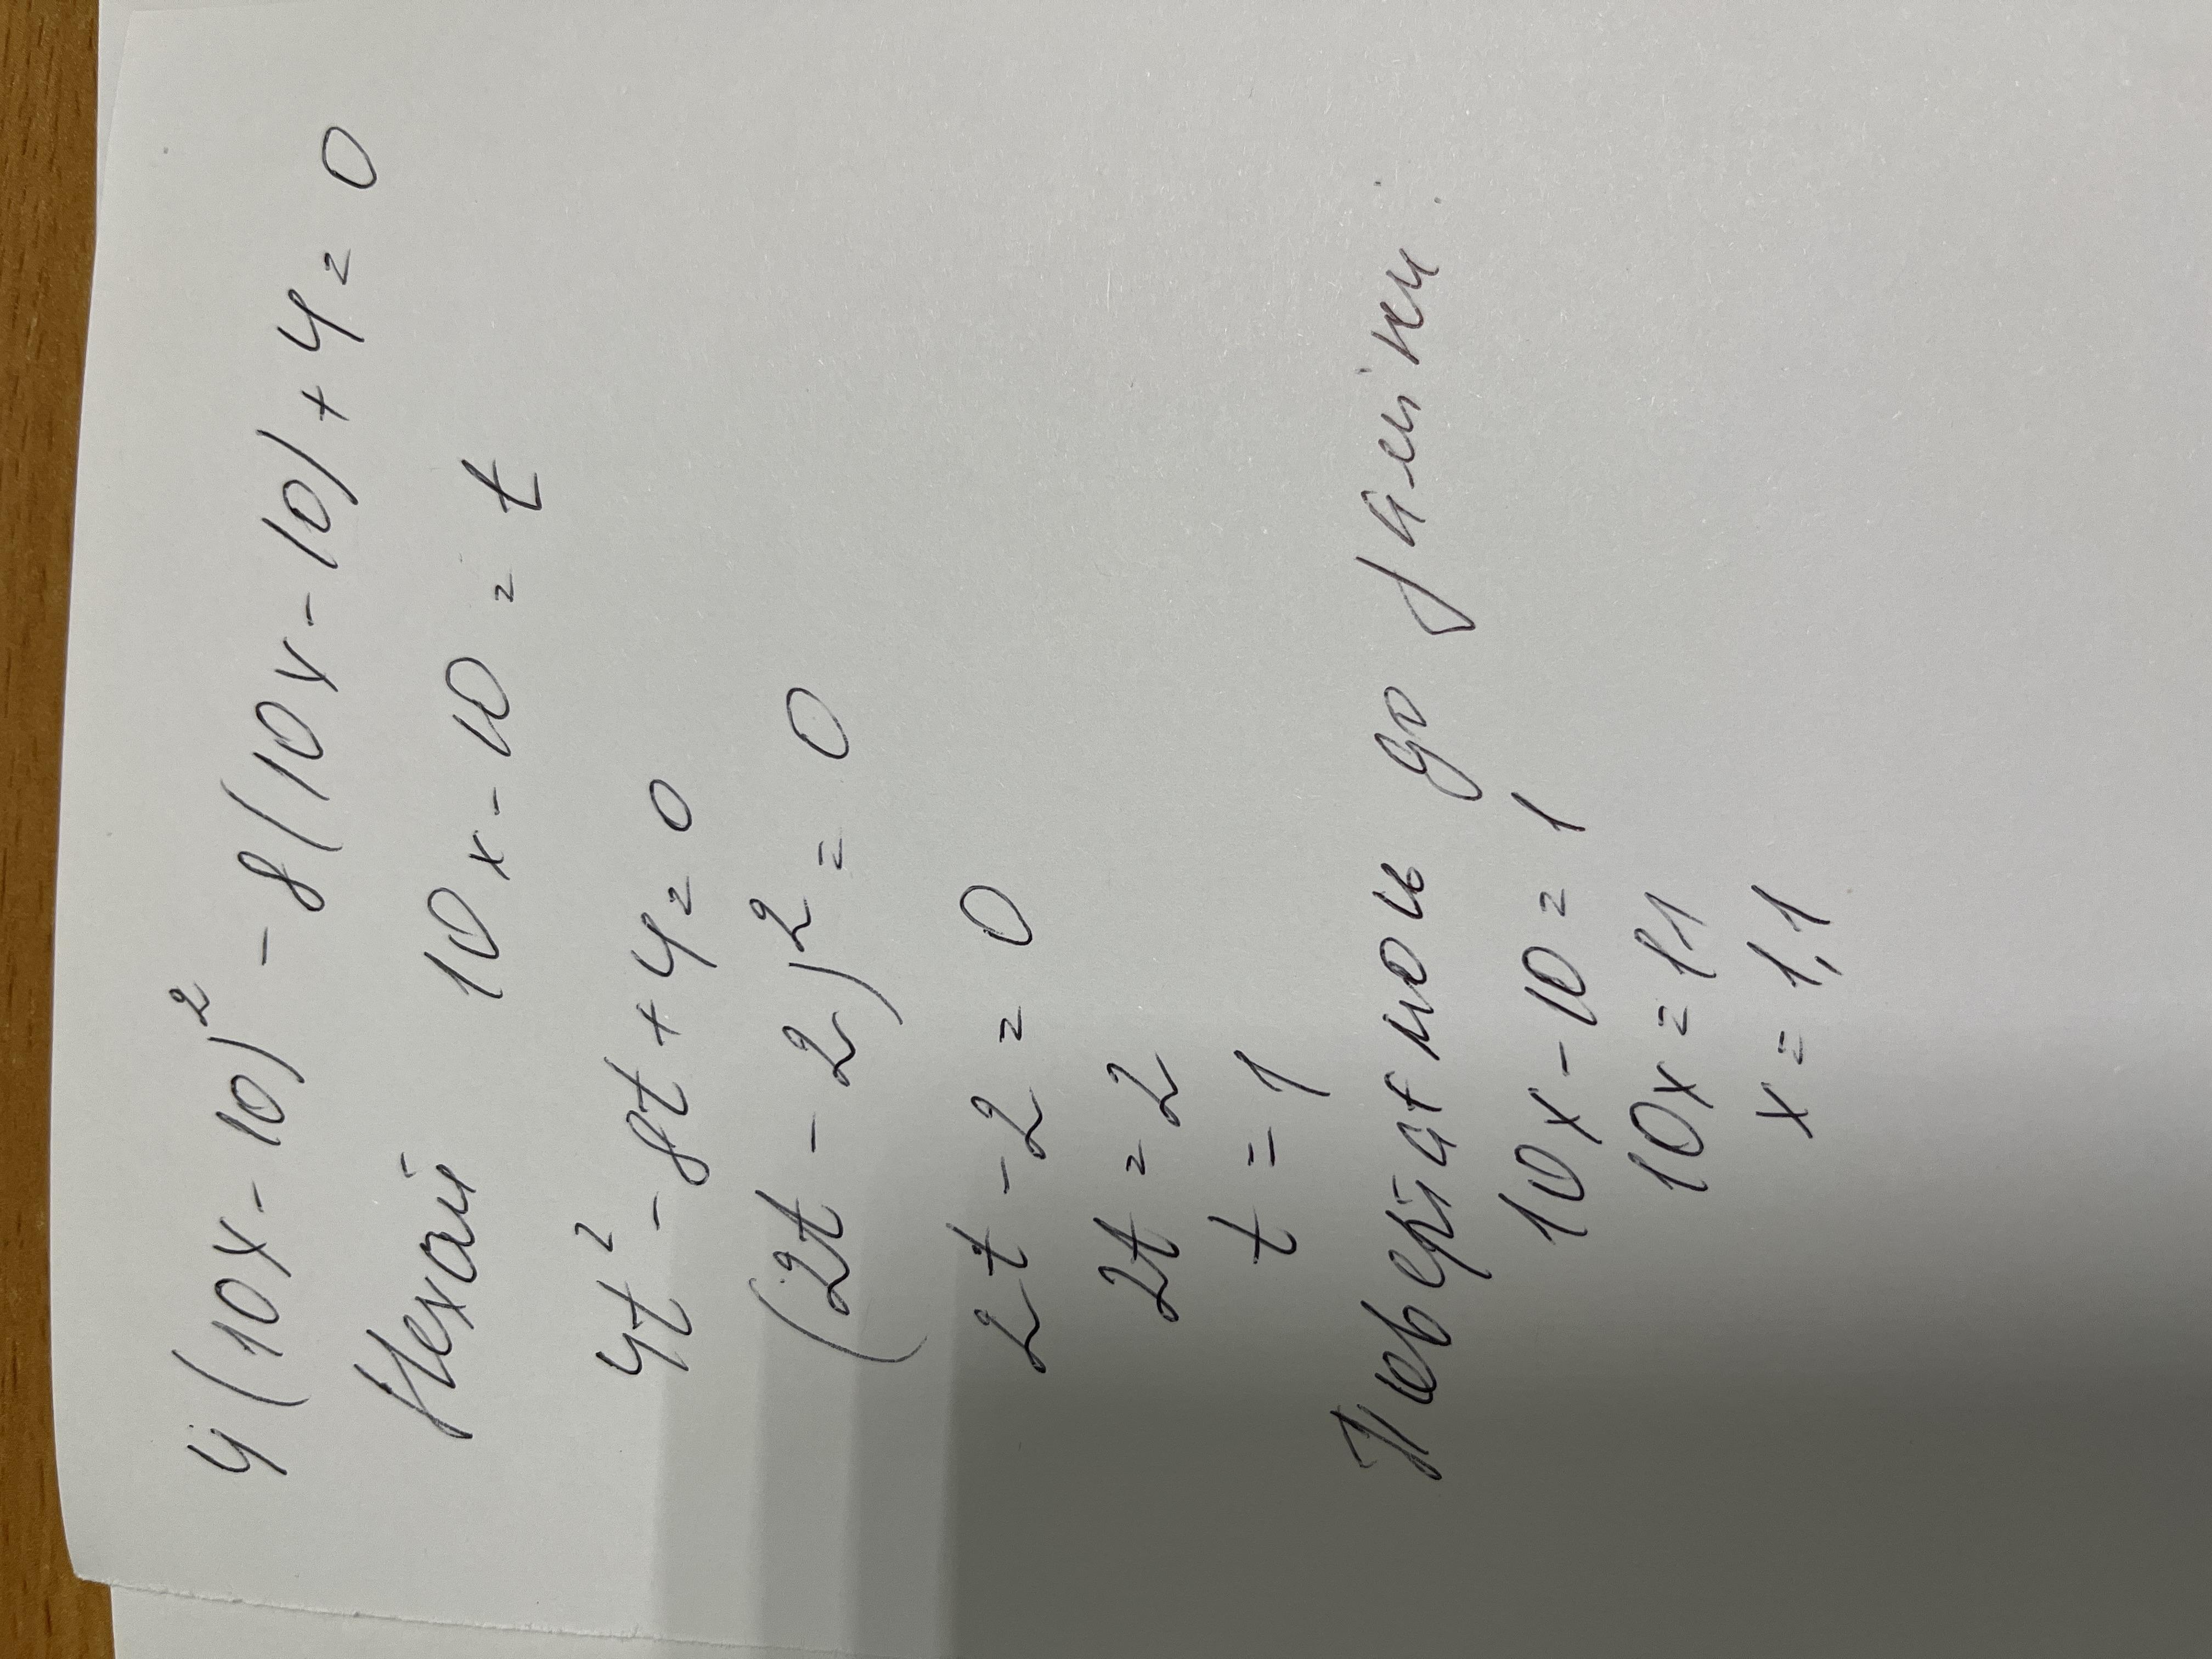 4(10x-10)² - 8(10x-10)+4=0
Нехай 10x-10=t
4t²-8t+4=0
(2t-2)²=0
2t-2=0
2t=2
t=1
Повертаємось до заміни.
10x-10=1
10x=11
x=1,1